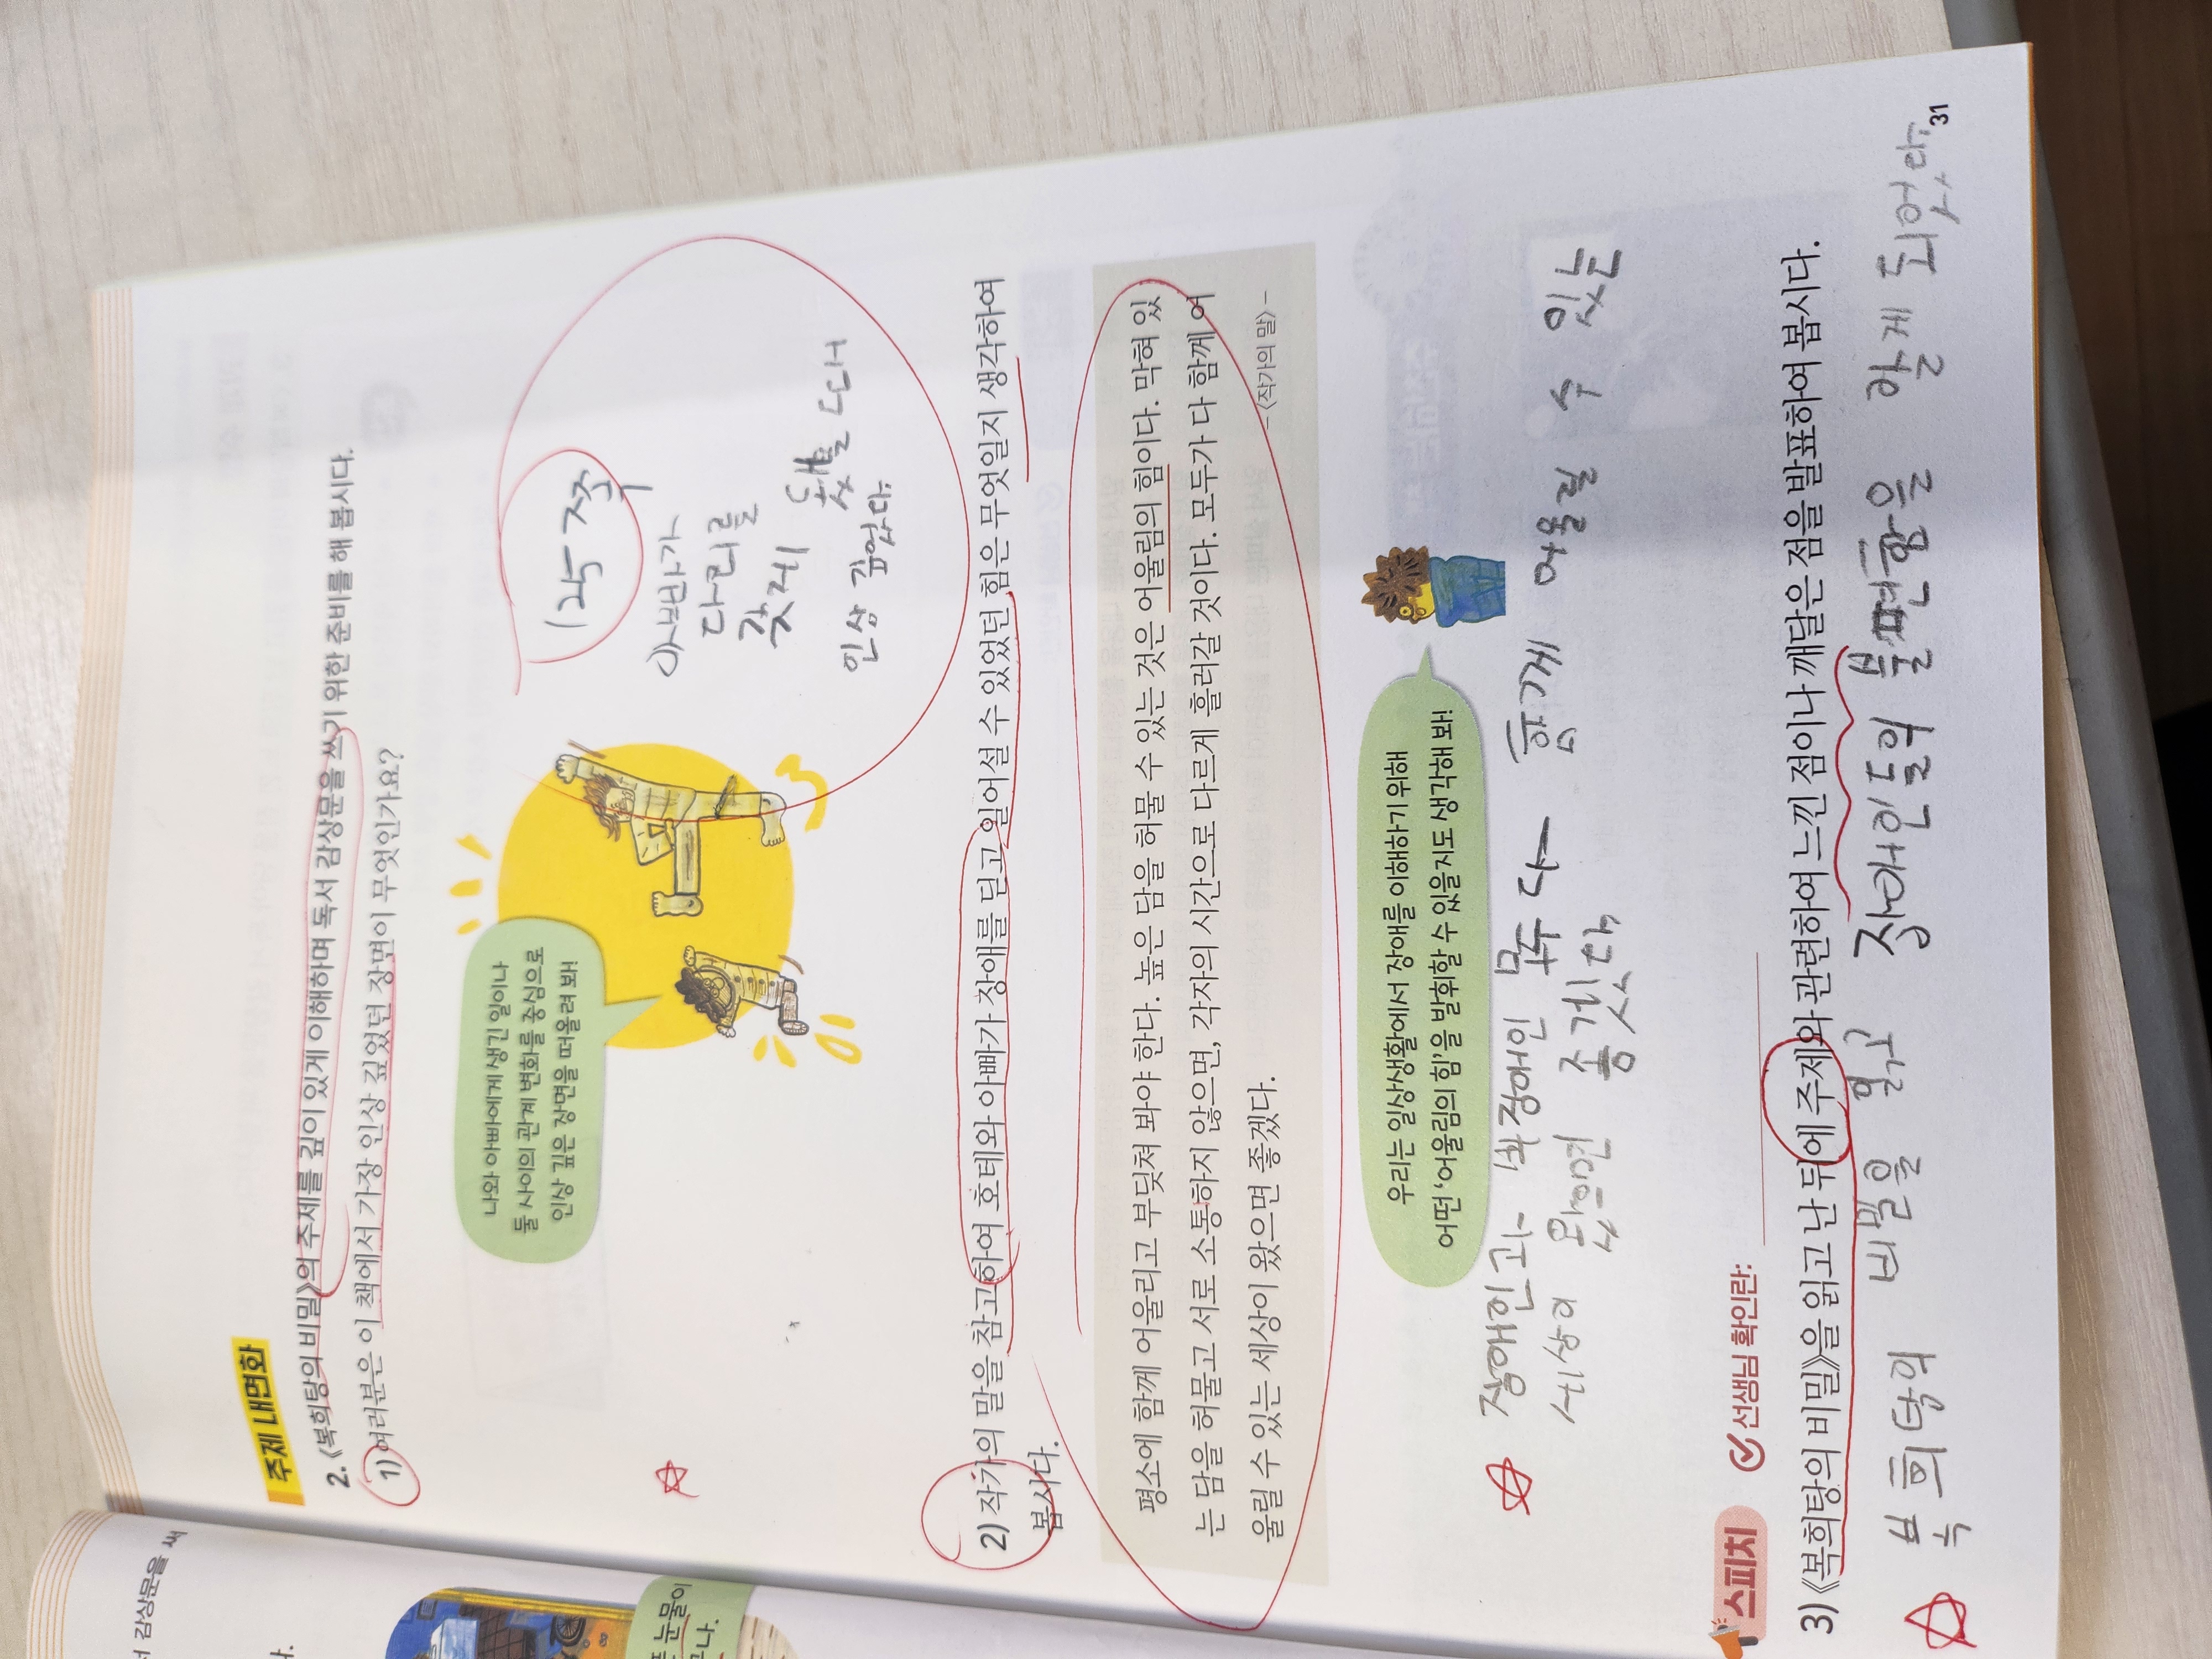 서 감상문을 써
다.
눈물이
구나.
주제 내면화
2. 《복희탕의 비밀》의 주제를 깊이 있게 이해하며 독서 감상문을 쓰기 위한 준비를 해 봅시다.
1) 여러분은 이 책에서 가장 인상 깊었던 장면이 무엇인가요?
나와 아빠에게 생긴 일이나
둘 사이의 관계 변화를 중심으로
인상 깊은 장면을 떠올려 봐!
125쪽
아빠가
다리를
잃게
됐을 때
인상 깊었다.
2) 작가의 말을 참고하여 호테와 아빠가 장애를 딛고 일어설 수 있었던 힘은 무엇일지 생각하여
봅시다.
평소에 함께 어울리고 부딪쳐 봐야 한다. 높은 담을 허물 수 있는 것은 어울림의 힘이다. 막혀 있
는 담을 허물고 서로 소통하지 않으면, 각자의 시간으로 다르게 흘러갈 것이다. 모두가 다 함께 어
울릴 수 있는 세상이 왔으면 좋겠다.
-〈작가의 말〉-
우리는 일상생활에서 장애를 이해하기 위해
어떤 ‘어울림의 힘’을 발휘할 수 있을지도 생각해 봐!
장애인과 비장애인 모두 다 함께 어울릴 수 있는
세상이 왔으면 좋겠다.
스피치
선생님 확인란:
3) 《복희탕의 비밀》을 읽고 난 뒤에 주제와 관련하여 느낀 점이나 깨달은 점을 발표하여 봅시다.
복희탕의 비밀을 읽고 장애인들의 불편함을 알게 되었다.
31